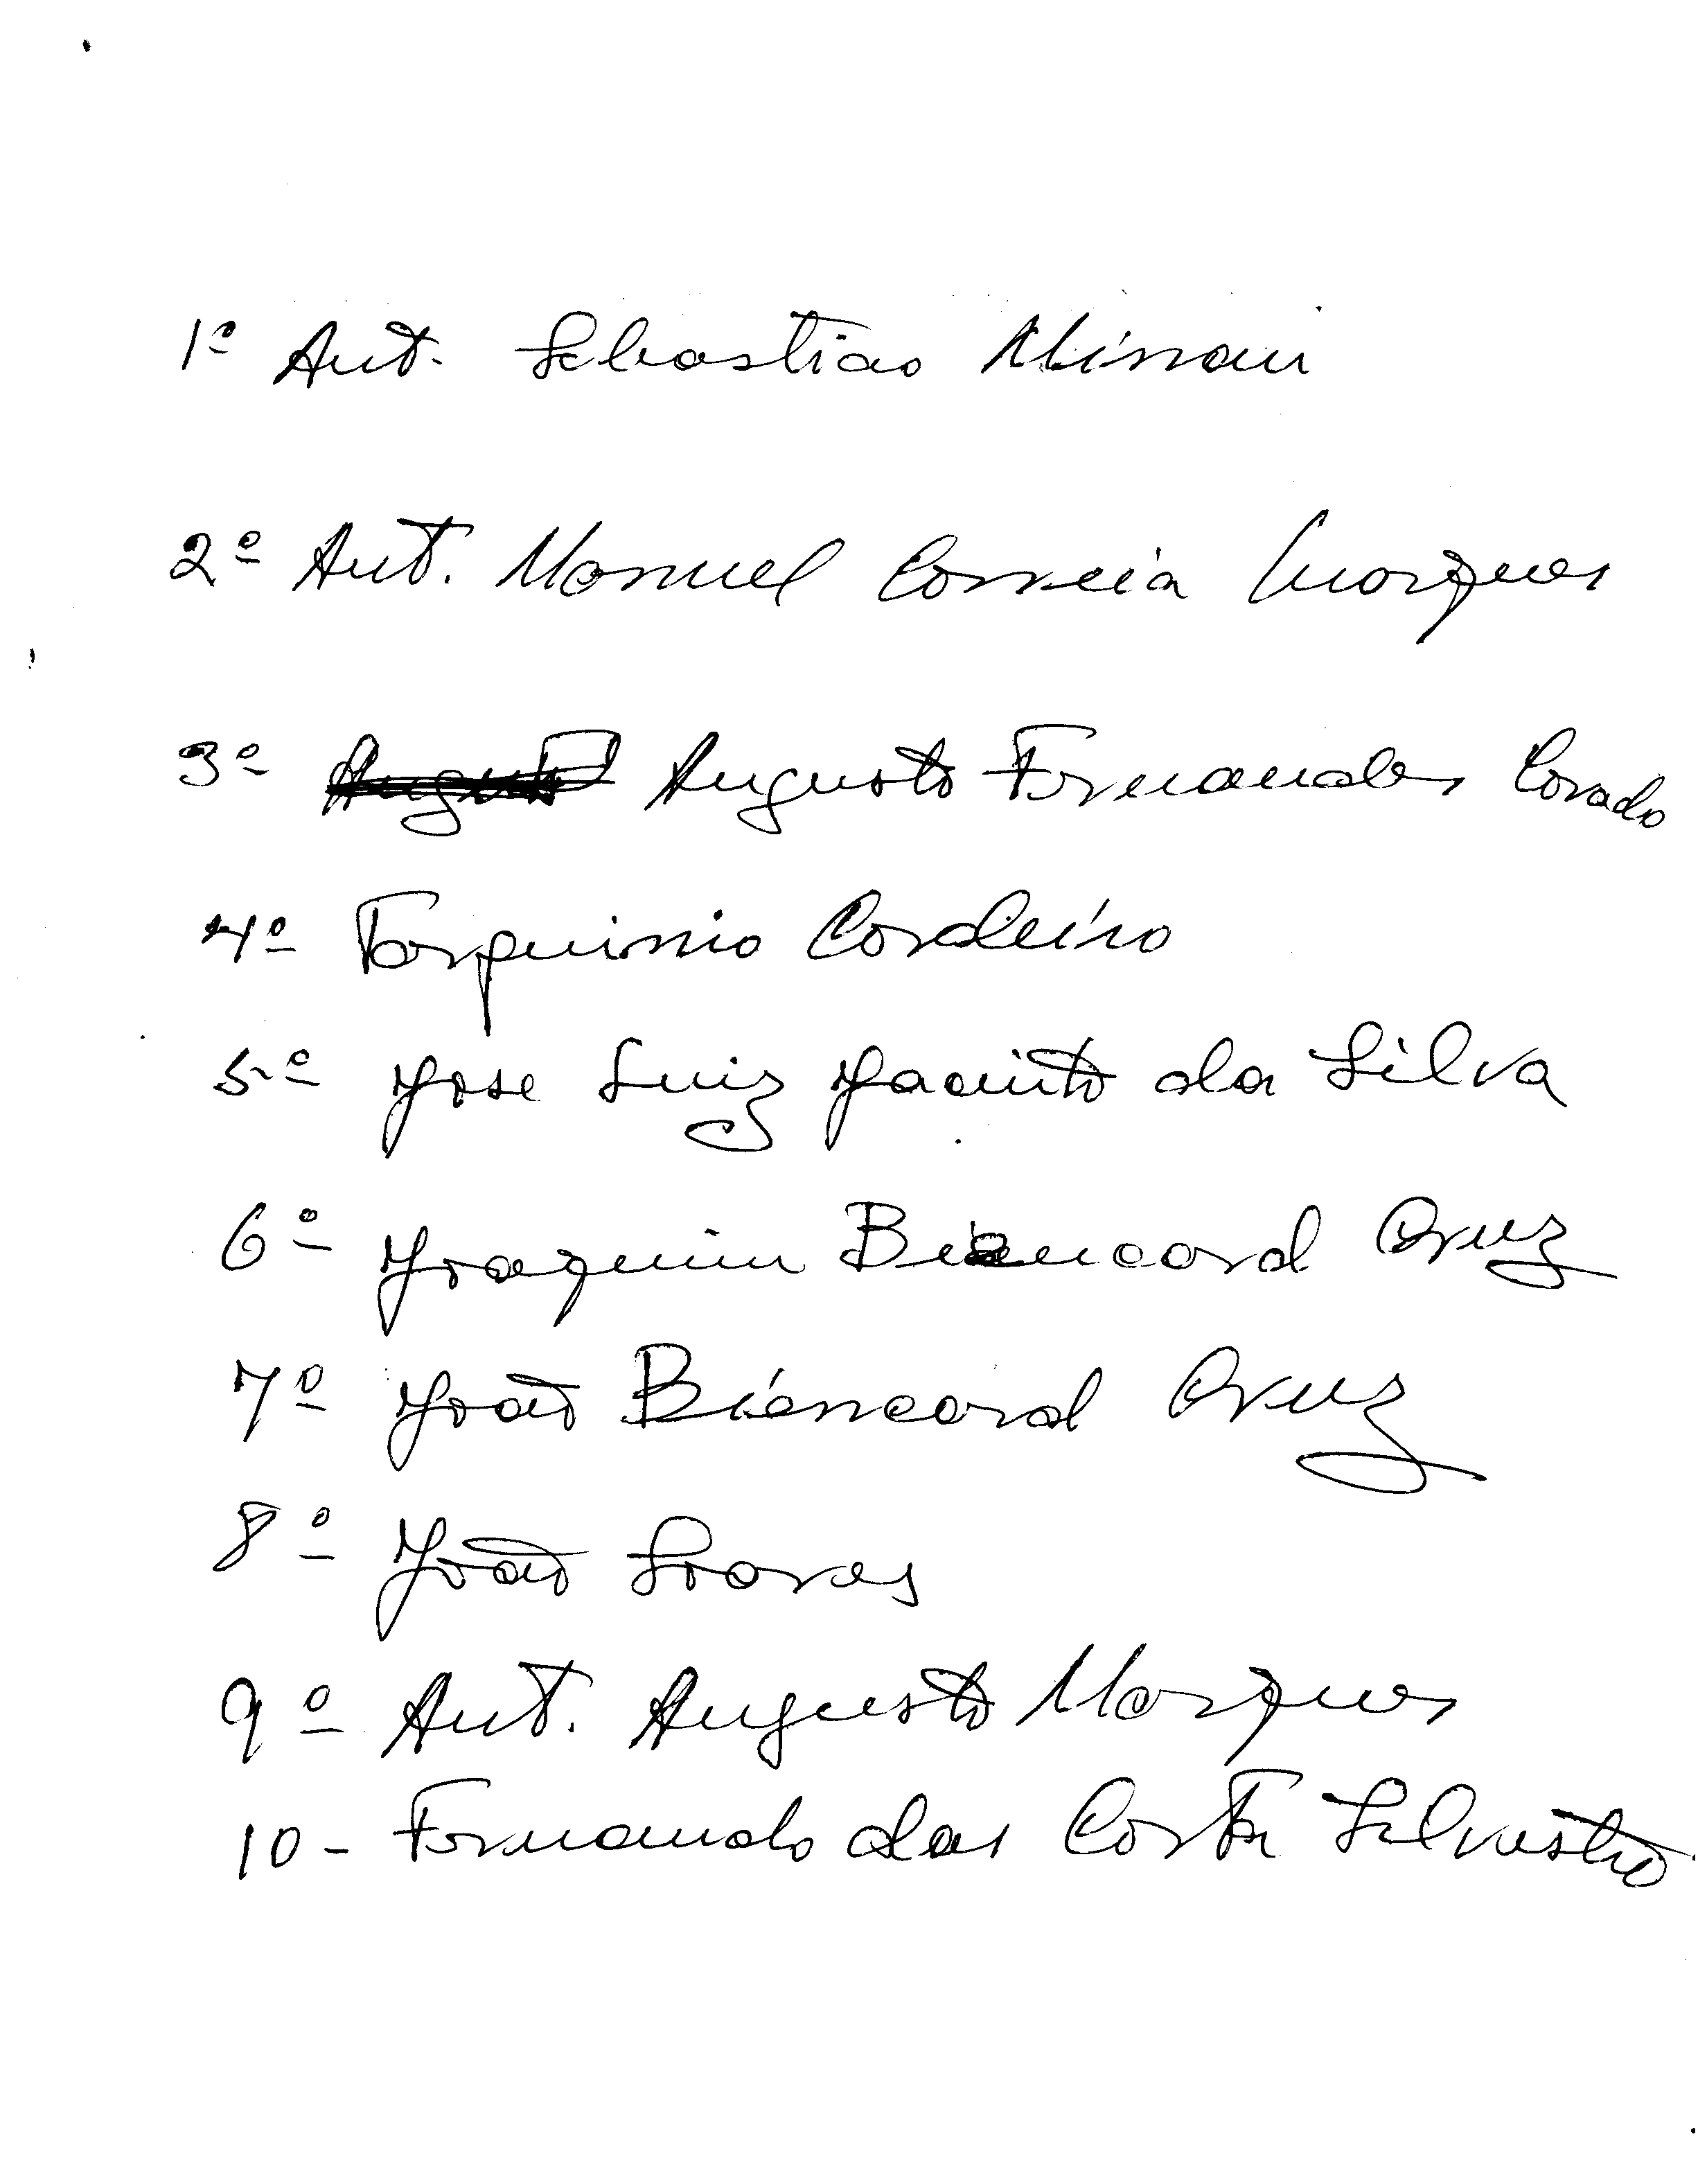 1º Ant. Sebastiao
2º Ant. Manuel Correia Marques
3º Augusto Fernandes Covado
4º Tarquinio Cordeiro
5º Jose Luiz Jacinto da Silva
6º Joaquim Biancard Cruz
7º João Biancard Cruz
8º João Soares
9º Ant. Augusto Marques
10 - Fernando das Costa Silvestre